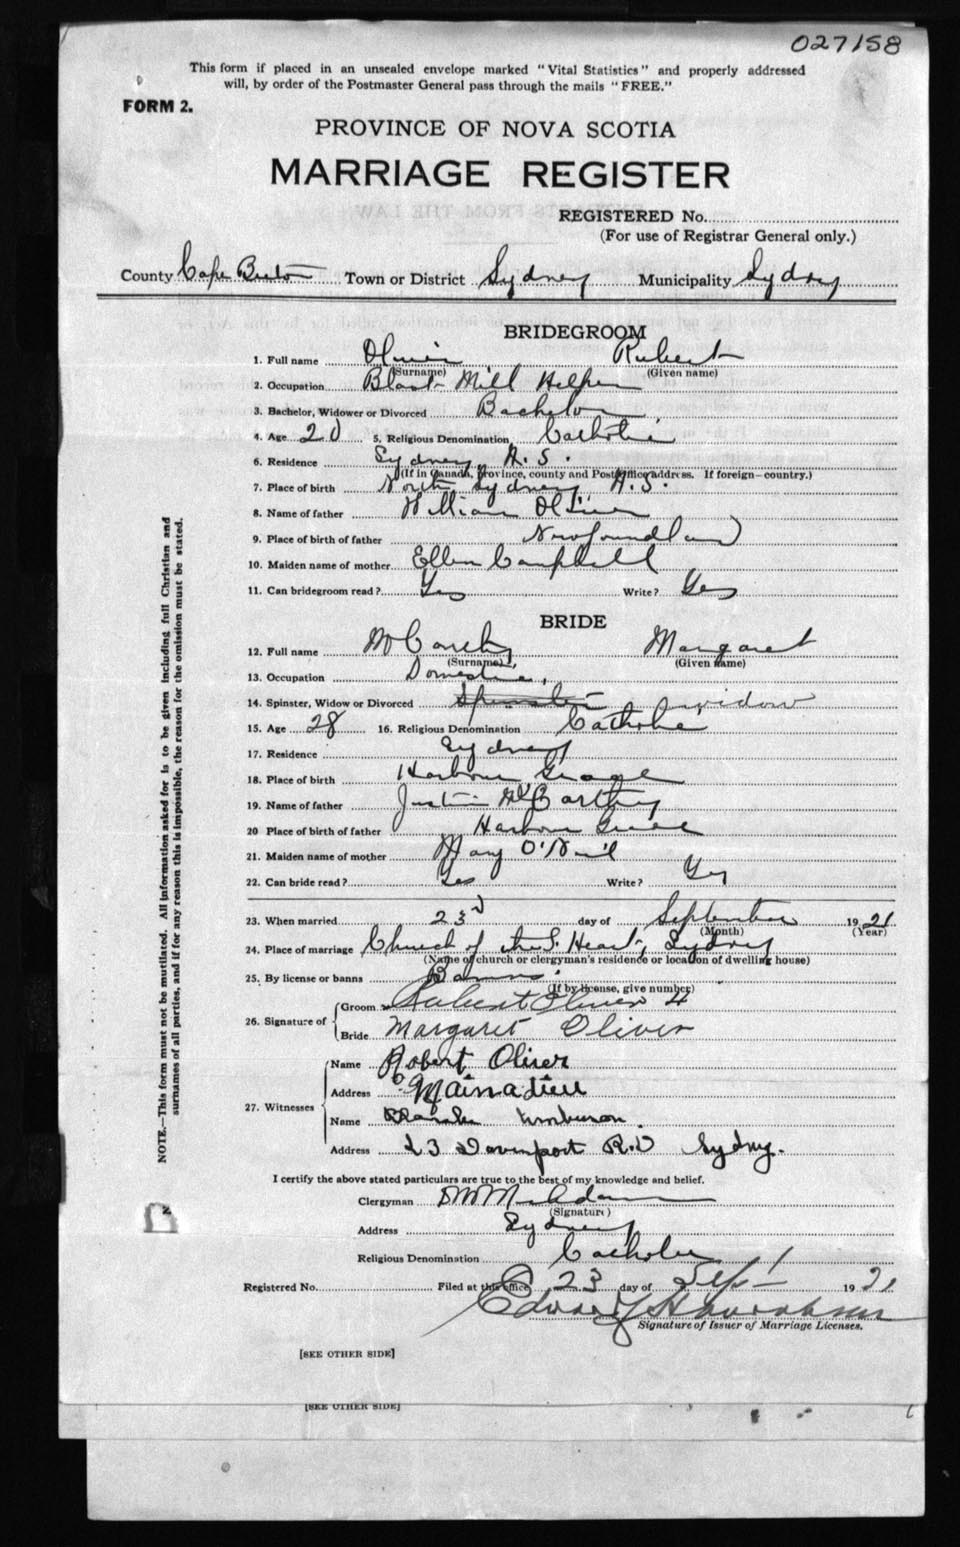 027158
This form if placed in an unsealed envelope marked "Vital Statistics" and properly addressed
will, by order of the Postmaster General pass through the mails "FREE."
FORM 2.
PROVINCE OF NOVA SCOTIA
MARRIAGE REGISTER
REGISTERED No.
(For use of Registrar General only.)
County Cape Breton Town or District Sydney Municipality Sydney
BRIDEGROOM
1. Full name Oliver Rubert
(Surname) (Given name)
2. Occupation Blast Mill Helper
3. Bachelor, Widower or Divorced Bachelor
4. Age 20 5. Religious Denomination Catholic
6. Residence Sydney N.S.
(If in Canada, province, county and Post office address. If foreign—country.)
7. Place of birth North Sydney N.S.
8. Name of father William Oliver
9. Place of birth of father Newfoundland
10. Maiden name of mother Ellen Campbell
11. Can bridegroom read? Yes Write? Yes
BRIDE
12. Full name McCarthy Margaret
(Surname) (Given name)
13. Occupation Domestic
14. Spinster, Widow or Divorced Spinster widow
15. Age 28 16. Religious Denomination Catholic
17. Residence Sydney
18. Place of birth Harbour Grace
19. Name of father Justin McCarthy
20 Place of birth of father Harbour Grace
21. Maiden name of mother Mary O'Neil
22. Can bride read? Yes Write? Yes
23. When married 23d day of September 1921
(Month) (Year)
24. Place of marriage Church of the S. Heart, Sydney
(Name of church or clergyman's residence or location of dwelling house)
25. By license or banns Banns.
(If by license, give number)
26. Signature of Groom Oliver
Bride Margaret Oliver
27. Witnesses Name Robert Oliver
Address Mainadieu
Name
Address 23 Davenport R.D Sydney.
I certify the above stated particulars are true to the best of my knowledge and belief.
Clergyman
(Signature)
Address Sydney
Religious Denomination Catholic
Registered No. Filed at this office 23 day of Sept 1921
Edward
Signature of Issuer of Marriage Licenses.
[SEE OTHER SIDE]
[SEE OTHER SIDE]
NOTE.—This form must not be mutilated. All information asked for is to be given including full Christian and
surnames of all parties, and if for any reason this is impossible, the reason for the omission must be stated.